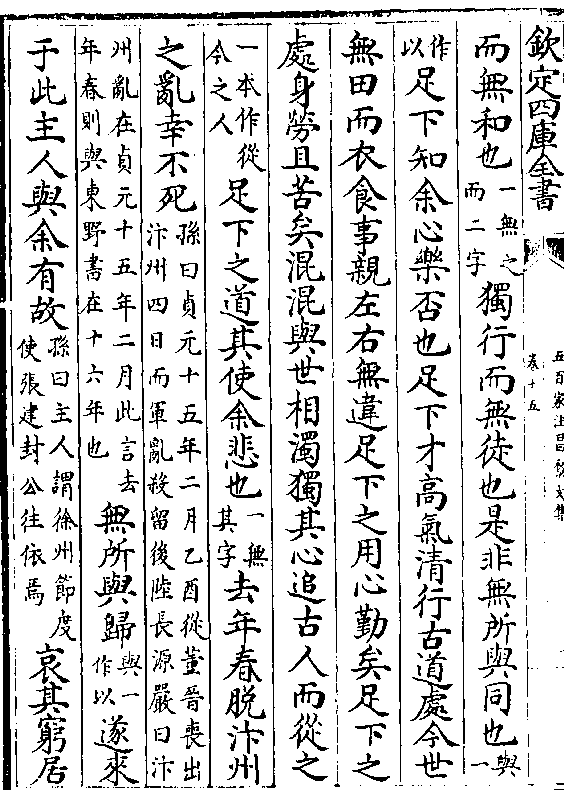 欽定四庫全書
五百家注昌黎文集
卷十五
而無和也一無之而二字獨行而無徒也是非無所與同也與一
作以足下知余心樂否也足下才高氣清行古道處今世
無田而衣食事親左右無違足下之用心勤矣足下之
處身勞且苦矣混混與世相濁獨其心追古人而從之
一本作從今之人足下之道其使余悲也一無其字去年春脱汴州
之亂幸不死孫曰貞元十五年二月乙酉從董晉喪出汴州四日而軍亂殺留後陸長源嚴曰汴
州亂在貞元十五年二月此言去年春則與東野書在十六年也無所與歸與一作以遂來
于此主人與余有故孫曰主人謂徐州節度使張建封公往依焉哀其窮居